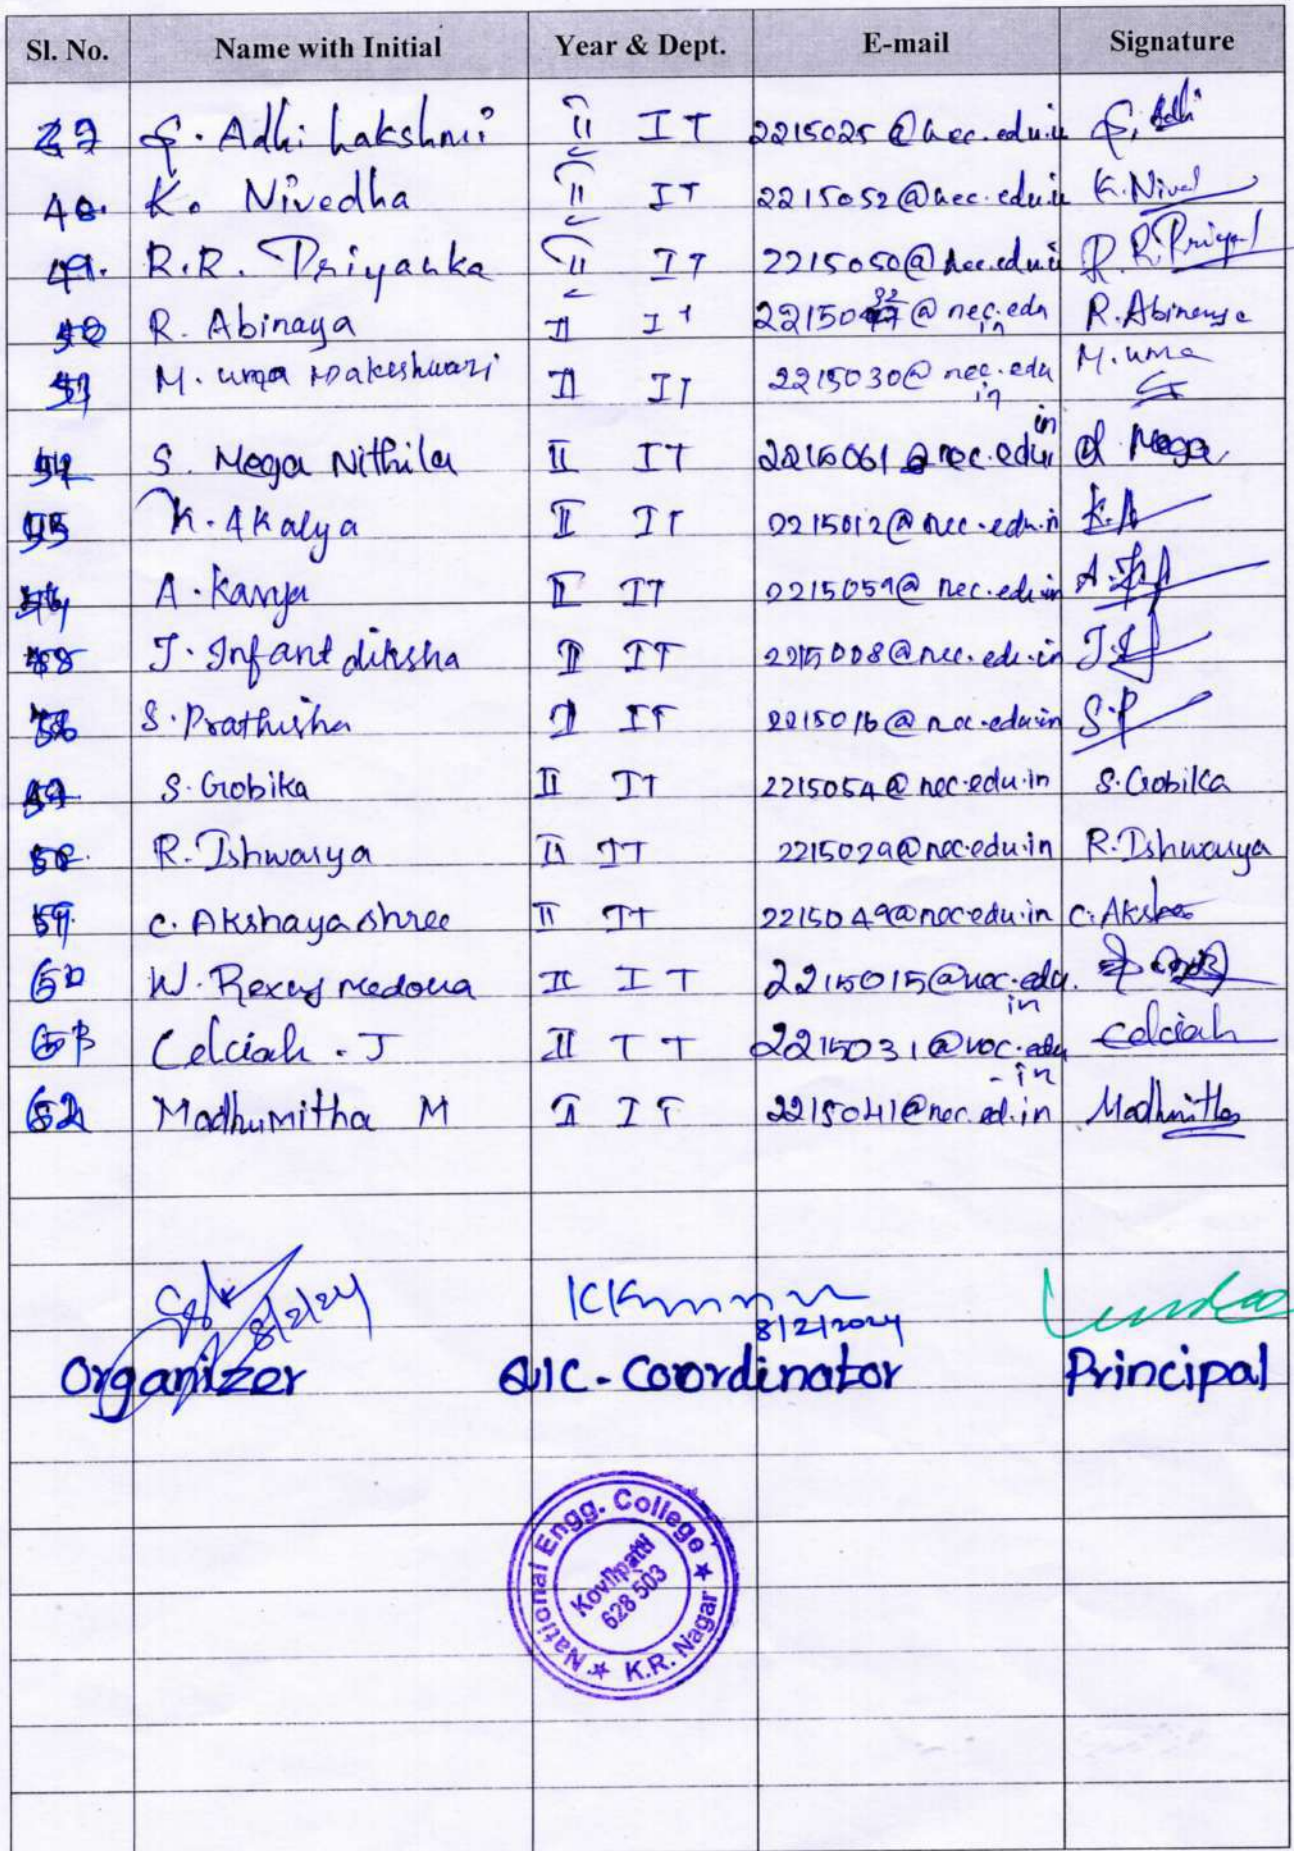 Sl. No. Name with Initial Year & Dept. E-mail Signature
S. Adhi Lakshmi II IT 2215025@nec.edu.in S. Adhi
K. Nivedha II IT 2215052@nec.edu.in K. Nived
49. R.R. Priyanka II IT 2215050@nec.edu.in R.R. Priya
50 R. Abinaya II IT @nec.edu in R. Abinaya
51 M. uma Makeshwari II IT 2215030@nec.edu in M. uma
52 S. Mega Nithila II IT 2215061@nec.edu in S. Mega
53 K. Akalya II IT 2215012@nec.edu.in K.A
54 A. Kavya II IT 2215059@nec.edu.in
55 J. Infant diksha II IT 2215008@nec.edu.in
56 S. Prathisha II IT 2215016@nec.edu.in S.P
57 S. Gobika II IT 2215054@nec.edu.in S. Gobika
58. R. Ishwarya II IT 2215029@nec.edu.in R. Ishwarya
59. C. Akshaya shree II IT 2215049@nec.edu.in C. Akshee
60 W. Rexy medona II IT 2215015@nec.edu. in
61 Celciah . J II IT 2215031@nec.edu .in Celciah
62 Madhumitha M II IT 2215041@nec.ed.in Madhmitha
8/2/24 8/2/2024
Organizer QIC-Coordinator Principal
National Engg. College ★ K.R. Nagar ★
Kovilpatti
628 503